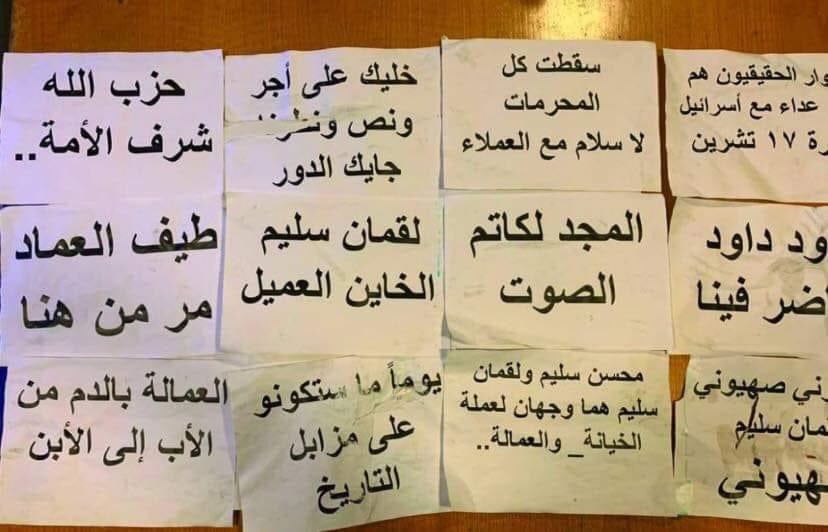 وار الحقيقيون هم
عداء مع أسرائيل
رة ١٧ تشرين
سقطت كل
المحرمات
لا سلام مع العملاء
خليك على أجر
ونص ونطرنا
جايك الدور
حزب الله
شرف الأمة..
ود داود
ضر فينا
المجد لكاتم
الصوت
لقمان سليم
الخاين العميل
طيف العماد
مر من هنا
ني صهيوني
مان سليم
هيوني
محسن سليم ولقمان
سليم هما وجهان لعملة
الخيانة_ والعمالة..
يوماً ما ستكونو
على مزابل
التاريخ
العمالة بالدم من
الأب إلى الأبن